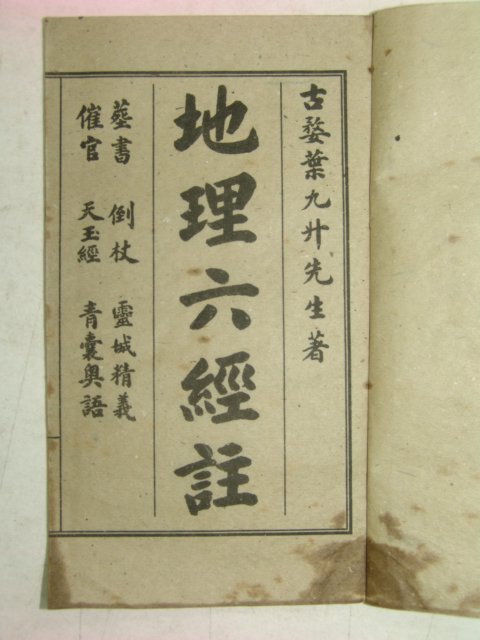 古婺葉九升先生著
地理六經註
葬書 倒杖 靈城精義
催官 天玉經 青囊奧語